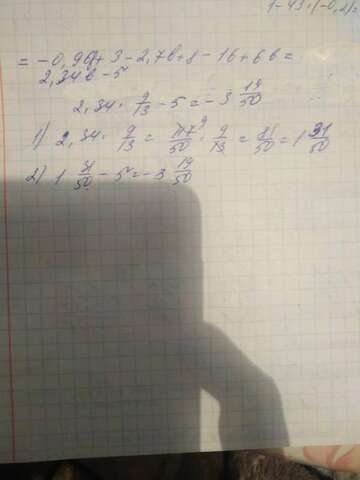 1-43·(-0,2)=
= -0,96b + 3 - 2,7b + 8 - 16 + 6b =
2,34b - 5
2,34 · 9/13 - 5 = -3 19/50
1) 2,34 · 9/13 = 117/50 · 9/13 = 81/50 = 1 31/50
2) 1 31/50 - 5 = -3 19/50